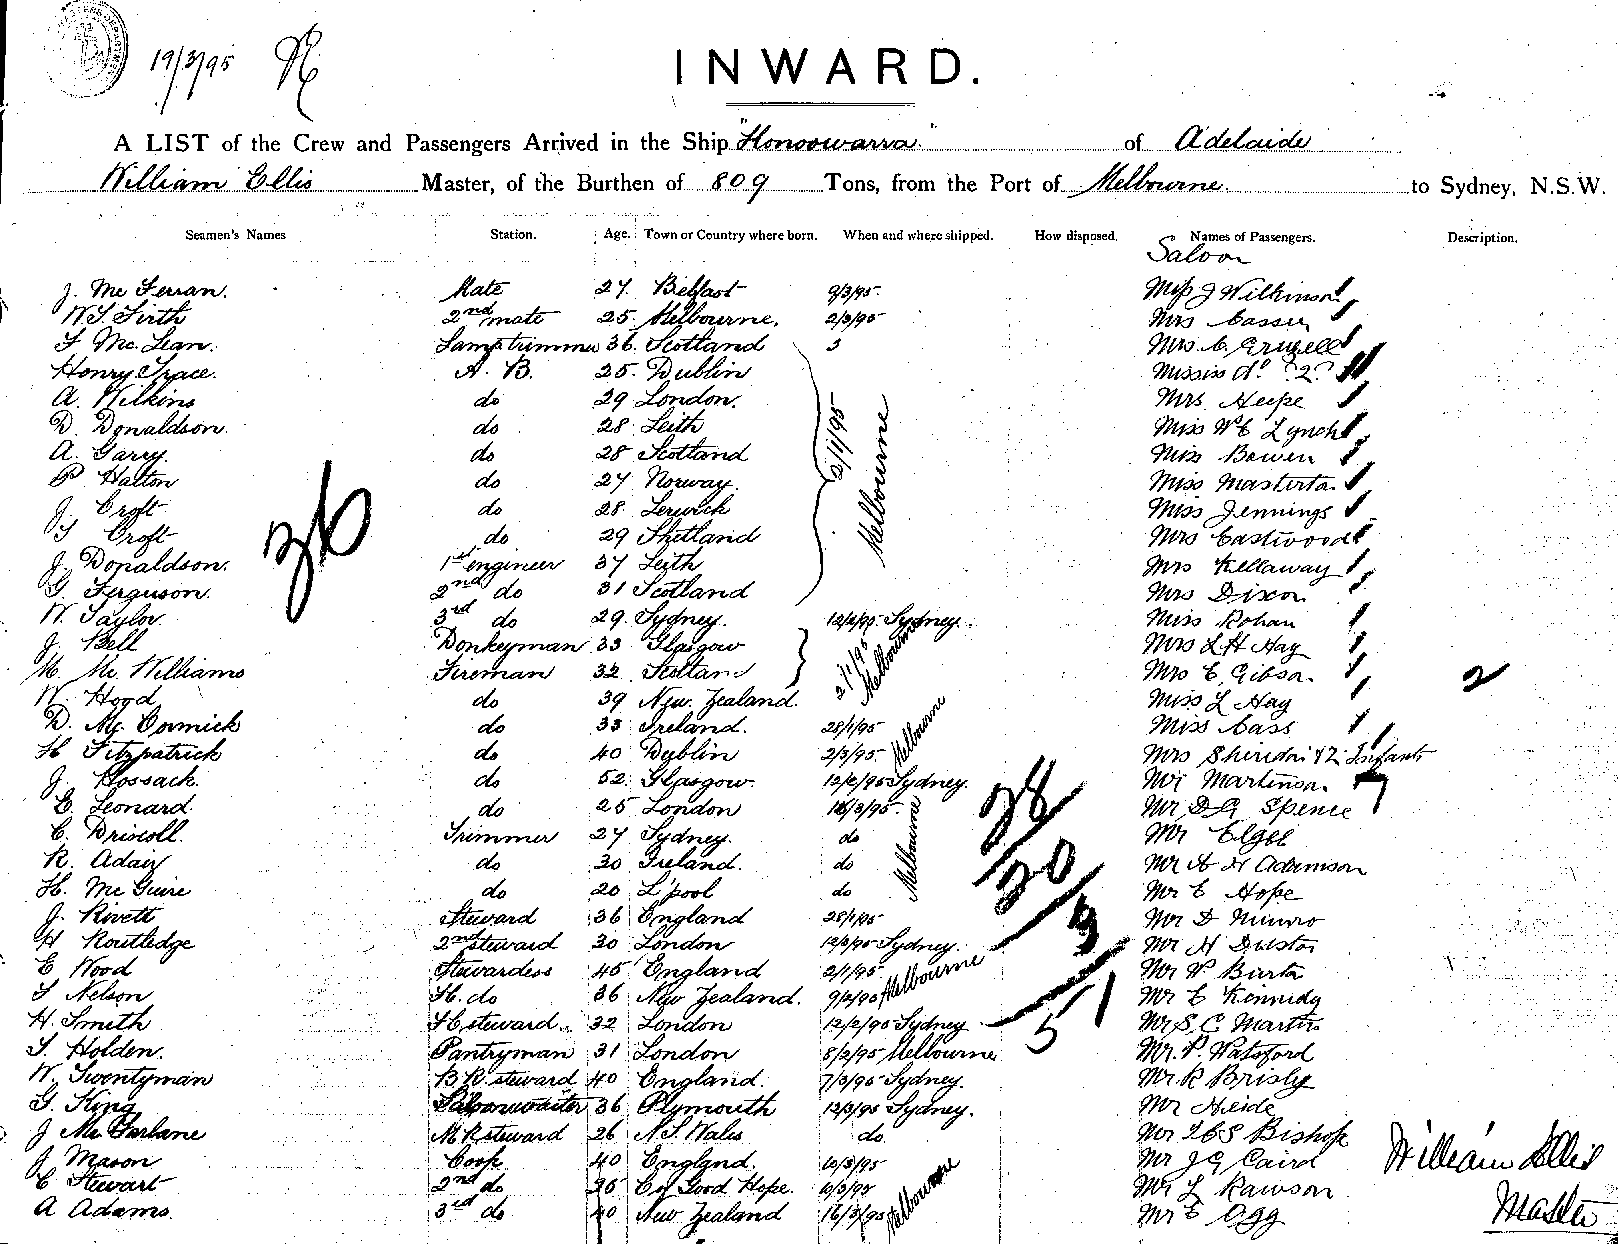 19/3/95
INWARD.
A LIST of the Crew and Passengers Arrived in the Ship "Honoowarra" of Adelaide
William Ellis Master, of the Burthen of 809 Tons, from the Port of Melbourne to Sydney, N.S.W.
Seamen's Names Station. Age. Town or Country where born. When and where shipped. How disposed. Names of Passengers. Description.
Saloon
J. Mc Ferran. Mate 27 Belfast 9/3/95 Miss J Wilkinson
W.S. Firth 2nd mate 25 Melbourne. 2/3/95 Mrs
F Mc Lean. Lamptrimmer 36 Scotland Mrs C.
Henry Grace. A. B. 25 Dublin Misses do (2)
A. Wilkins do 29 London. Mrs Heepe
D. Donaldson do 28 Leith Miss W E Lynch
A. Garry. do 28 Scotland 2/1/95 Melbourne Miss Bowen
P. Hatton do 27 Norway. Miss Masterton
J. Croft do 28 Lerwick Miss Jennings
Croft do 29 Shetland Mrs Eastwood
36
J. Donaldson. 1st engineer 37 Leith Mrs Kellaway
G. Ferguson. 2nd do 31 Scotland Mrs Dixon
W. Taylor 3rd do 29 Sydney. Sydney. Miss Rohan
J. Bell Donkeyman 33 Glasgow Mrs L H Hay
M. Mc Williams Fireman 32 Scotland 2/1/95 Melbourne Mrs E. Gibson 2
W. Hood do 39 New Zealand. Miss L Hay
D. Mc Cormick do 33 Ireland. 28/1/95 Miss Cass
H Fitzpatrick do 40 Dublin 2/3/95 Melbourne Mrs Sheridan & 2 Infants
J. Hossack. do 52 Glasgow. 12/2/95 Sydney. Mr Martinson
E. Leonard. do 25 London Mr D G Spence
28
C. Driscoll. Trimmer 27 Sydney. do Melbourne Mr Elgee
R. Adair do 30 Ireland. do Mr A H Adamson
20
H. Mc Guire do 20 L'pool do Mr E Hope
J. Rivett Steward 36 England 28/1/95 Mr D Munro
3
H Routledge 2nd steward 30 London 12/3/95 Sydney. Mr H
E Wood Stewardess 45 England 2/1/95 Melbourne Mr W
Nelson do 36 New Zealand. 9/2/95 Mr E Kennedy
51
H. Smith steward 32 London 12/2/95 Sydney Mr S. C. Martin
Holden. Pantryman 31 London 8/2/95 Melbourne Mr P. Watsford
W. Twentyman B R steward 40 England. 7/3/95 Sydney. Mr R Brisly
G. King Saloonwaiter 36 Plymouth 12/3/95 Sydney. Mr Heide
J Mc Farlane M R steward 26 N. S. Wales do Mr Bishop
J. Mason Cook 40 England. 10/3/95 Mr J G Caird
William Ellis
C Stewart 2nd do 36 C of Good Hope. 10/3/95 Melbourne Mr L Rawson
A Adams. 3rd do 40 New Zealand 16/3/95 Mr E Ogg
Master